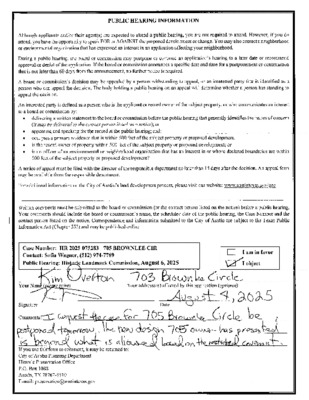 PUBLIC HEARING INFORMATION
Although applicants and/or their agents are expected to attend a public hearing, you are not required to attend. However, if you do
attend, you have the opportunity to speak FOR or AGAINST the proposed development or change. You may also contact a neighborhood
or environmental organization that has expressed an interest in an application affecting your neighborhood.
During a public hearing, the board or commission may postpone or continue an application's hearing to a later date or recommend
approval or denial of the application. If the board or commission announces a specific date and time for a postponement or continuation
that is not later than 60 days from the announcement, no further notice is required.
A board or commission's decision may be appealed by a person with standing to appeal, or an interested party that is identified as a
person who can appeal the decision. The body holding a public hearing on an appeal will determine whether a person has standing to
appeal the decision.
An interested party is defined as a person who is the applicant or record owner of the subject property, or who communicates an interest
to a board or commission by:
• delivering a written statement to the board or commission before the public hearing that generally identifies the issues of concern
• appearing and speaking for the record at the public hearing; and:
• occupies a primary residence that is within 500 feet of the subject property or proposed development;
• is the record owner of property within 500 feet of the subject property or proposed development; or
• is an officer of an environmental or neighborhood organization that has an interest in or whose declared boundaries are within
500 feet of the subject property or proposed development.
A notice of appeal must be filed with the director of the responsible department no later than 14 days after the decision. An appeal form
may be available from the responsible department.
Written comments must be submitted to the board or commission (or the contact person listed on the notice) before a public hearing.
Your comments should include the board or commission's name, the scheduled date of the public hearing, the Case Number and the
contact person listed on the notice. Correspondence and information submitted to the City of Austin are subject to the Texas Public
Information Act (Chapter 552) and may be published online.
Case Number: HR 2025 073283 705 BROWNLEE CIR
Contact: Sofia Wagner, (512) 974-
Public Hearing: Historic Landmark Commission, August 6, 2025
I am in favor
I object
Kim Overton 703 Brownlee Circle
Your Name (please print) Your address(es) affected by this application (optional)
August 4, 2025
Signature Date
Comments: I request the case for 705 Brownlee Circle be
postponed tomorrow, the new design 705 owner has presented
is beyond what is allowed based on the restricted covenant.
If you use this form, it may be returned to:
City of Austin Planning Department
Historic Preservation Office
P.O. Box 1088
Austin, TX 78767